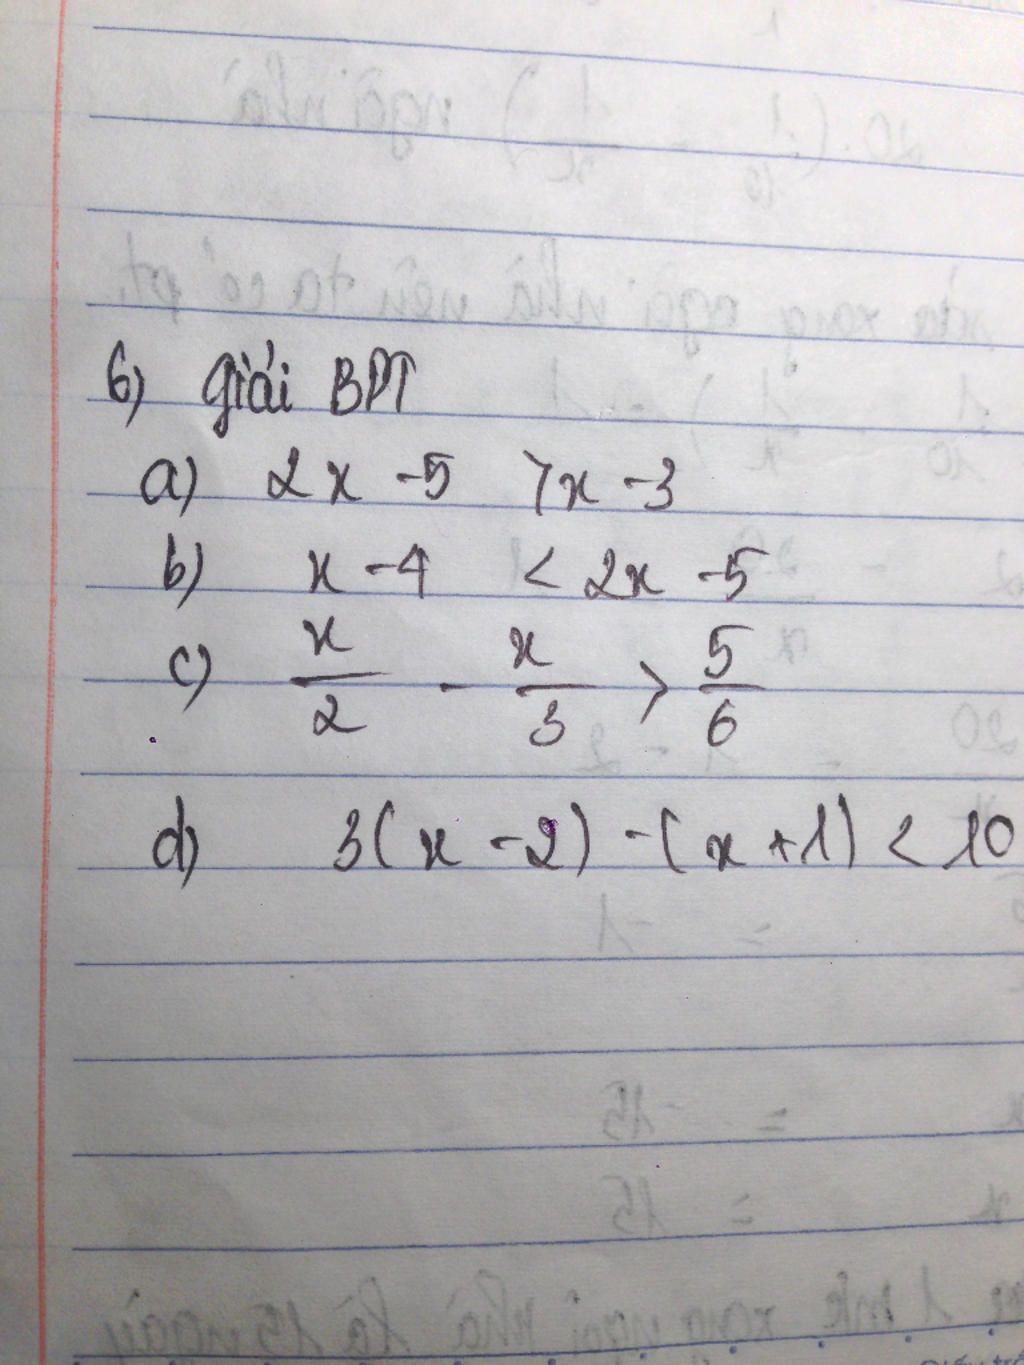 6) Giải BPT
a) 2x - 5 > x - 3
b) x - 4 < 2x - 5
c) x/2 - x/3 > 5/6
d) 3(x - 2) - (x + 1) < 10